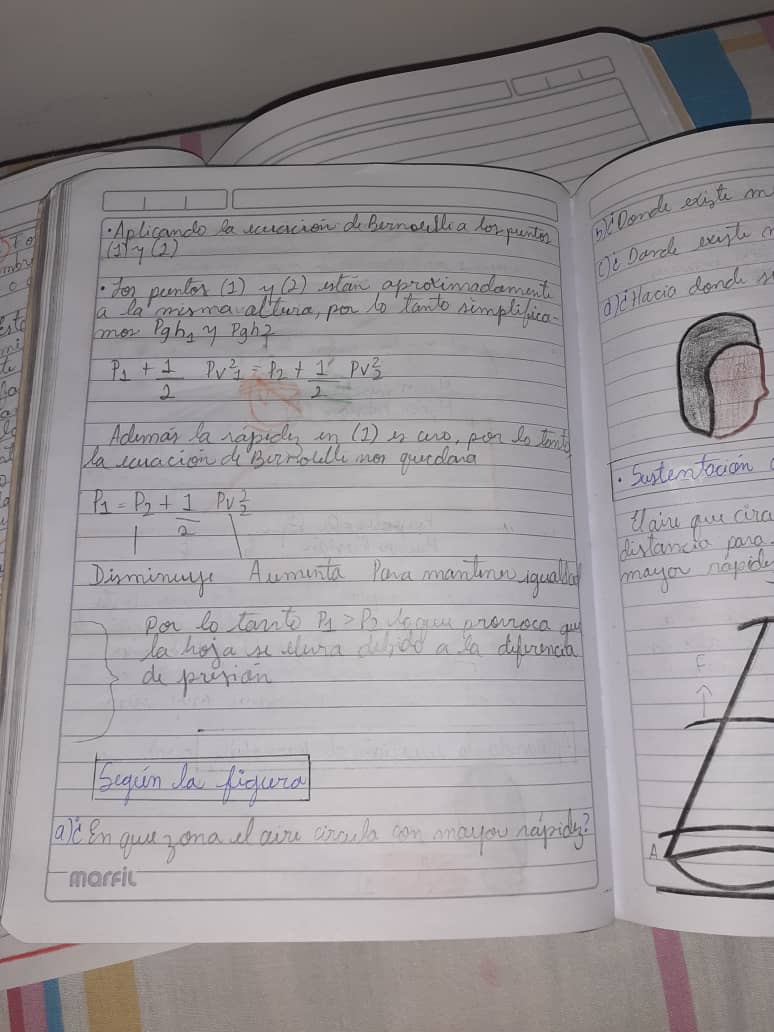 • Aplicando la ecuación de Bernoulli a los puntos
(1) y (2)
• Los puntos (1) y (2) están aproximadament
a la misma altura, por lo tanto simplifica-
mos Pgh₁ y Pgh₂
P₁ + 1/2 PV₁² = P₂ + 1/2 PV₂²
Además la rápidez en (1) es cero, por lo tanto
la ecuación de Bernolelli nos quedara
P₁ = P₂ + 1/2 PV₂²
Disminuye Aumenta Para mantener igualdad
Por lo tanto P₁ > P₂ lo que provoca que
la hoja se eleva debido a la diferencia
de presión
Según la figura
a) ¿En que zona el aire circula con mayor rápidez?
marfil
b) ¿Donde existe m
c) ¿Donde existe
d) ¿Hacia donde
• Sustentación
El aire que circ
distancia para
mayor rápidez
F
A